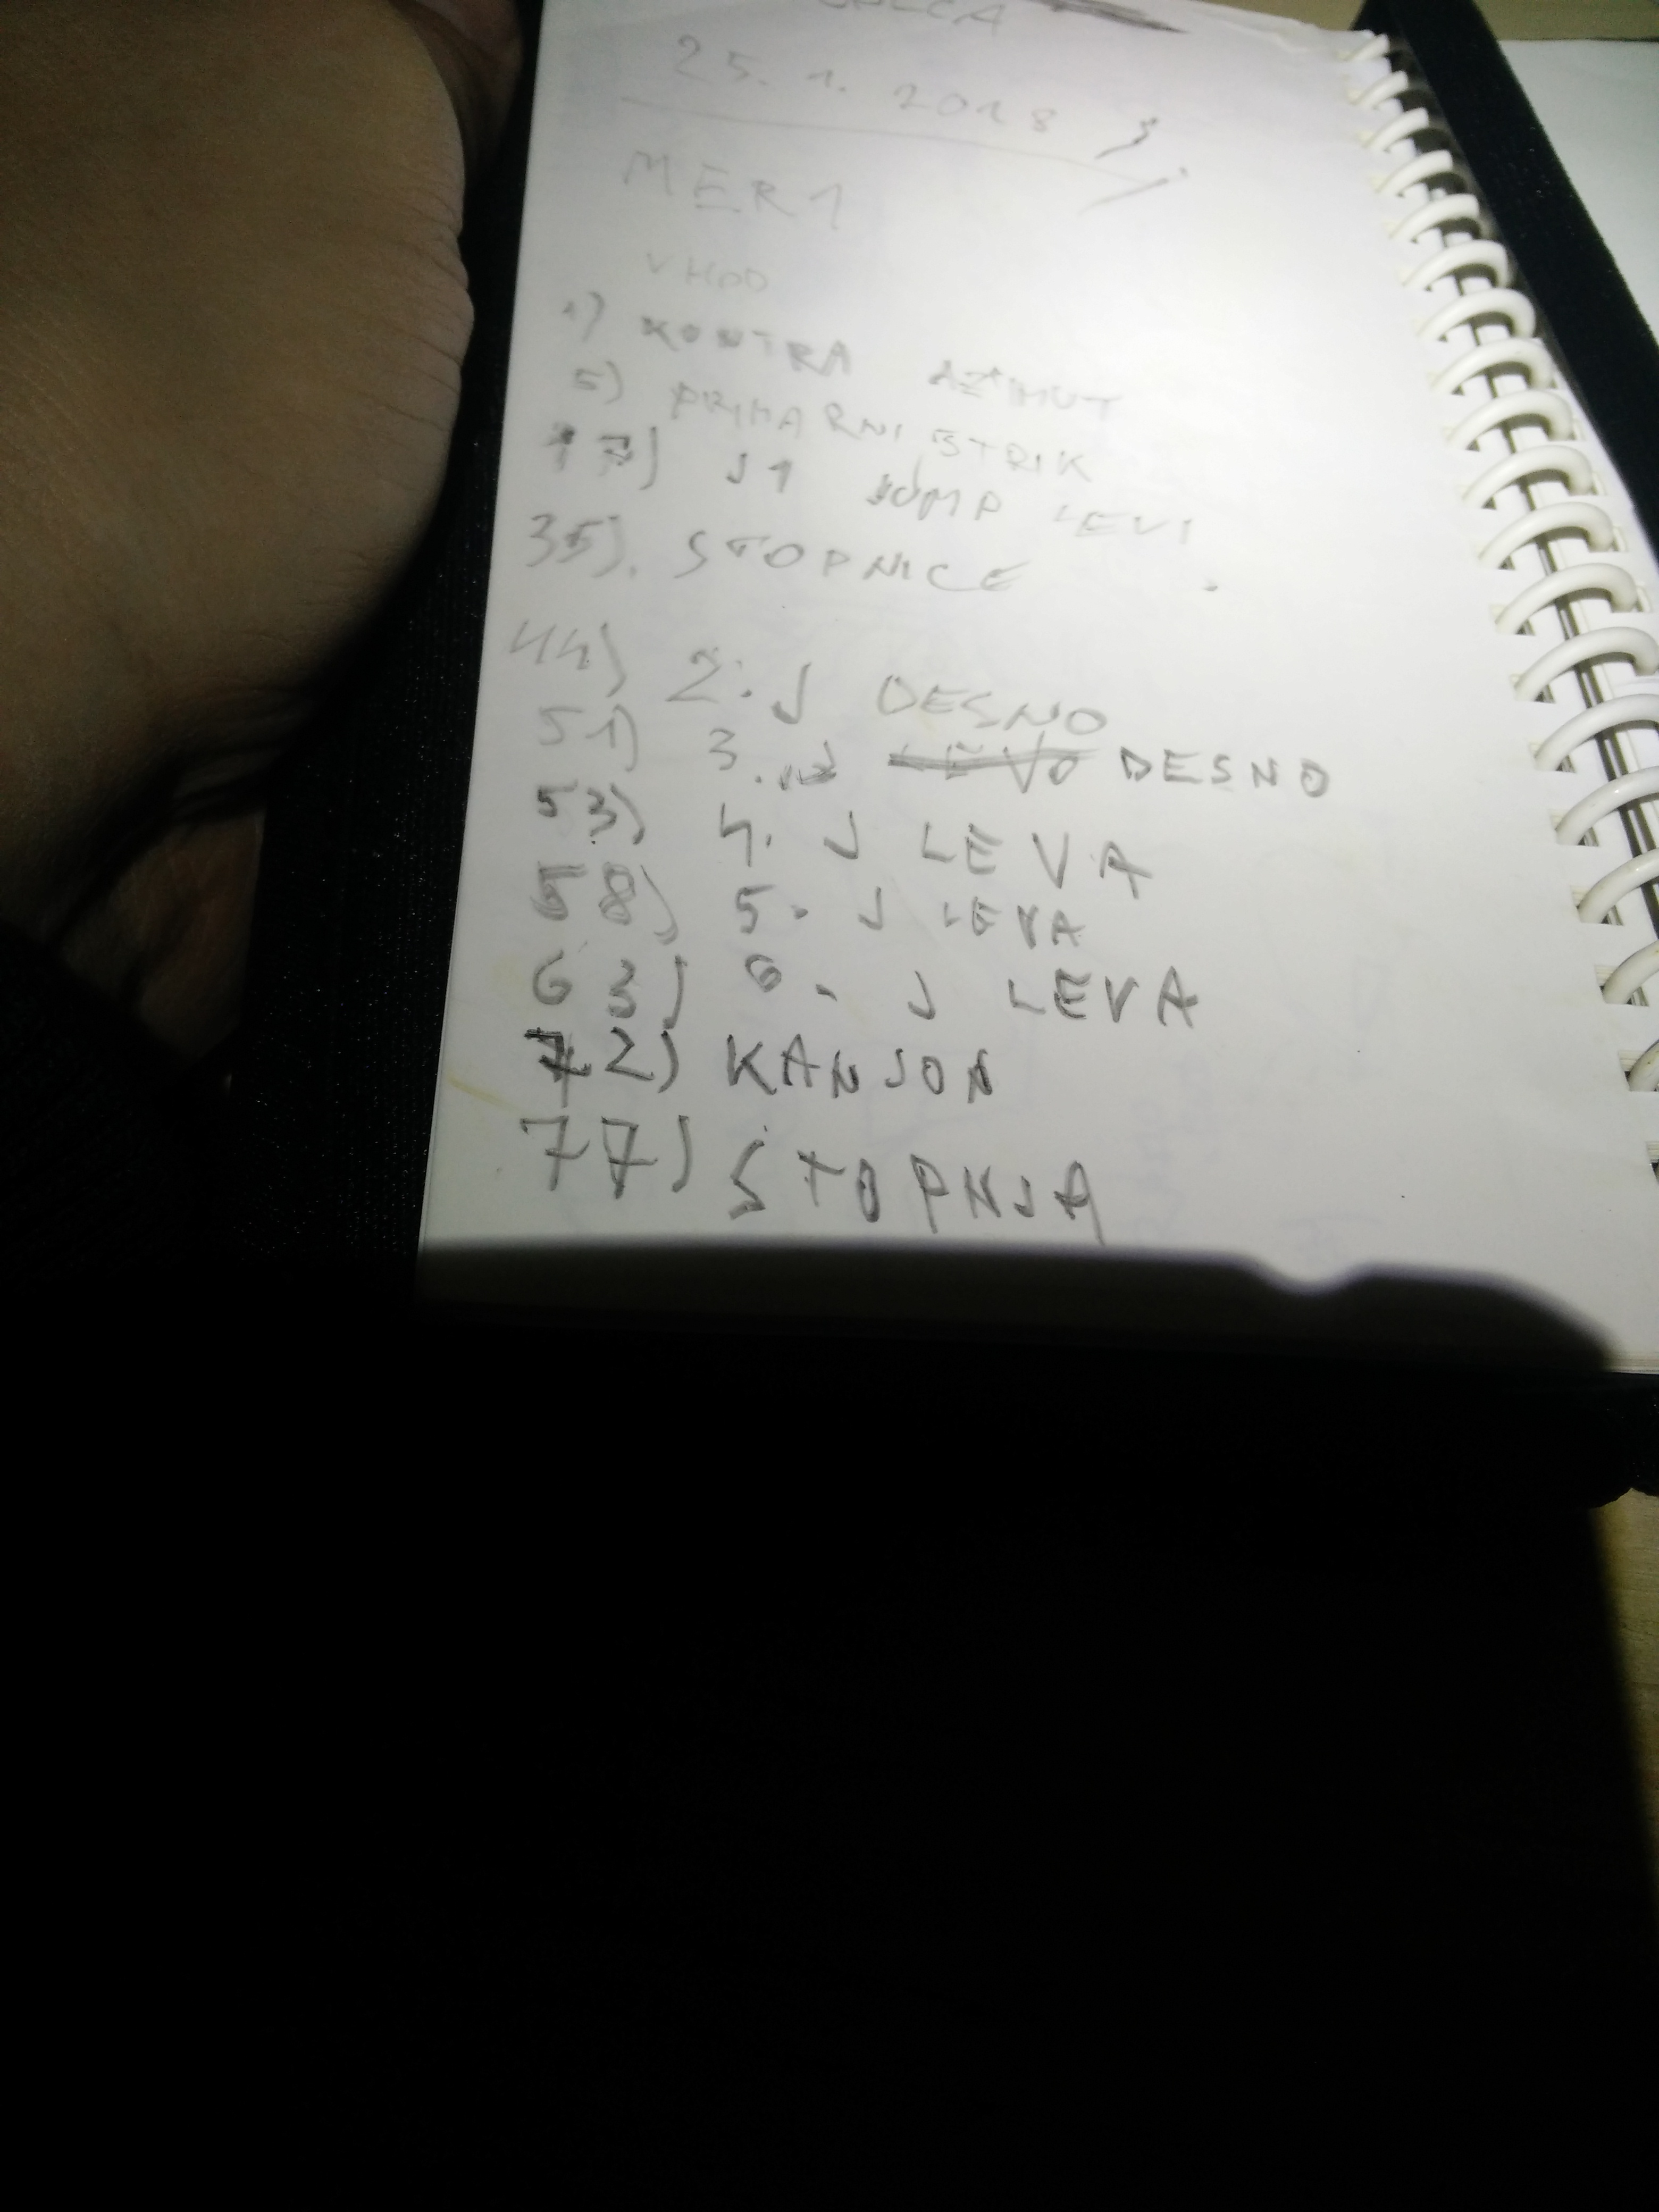 25. 1. 2018
MER1
VHOD
1) KONTRA AZIMUT
5) PRIMARNI STRIK
17) J1 JUMP LEVI
35). STOPNICE
44) 2. J DESNO
51) 3. J LEVO DESNO
53) 4. J LEVA
58) 5. J LEVA
63) 6. J LEVA
72) KANJON
77) STOPNJA